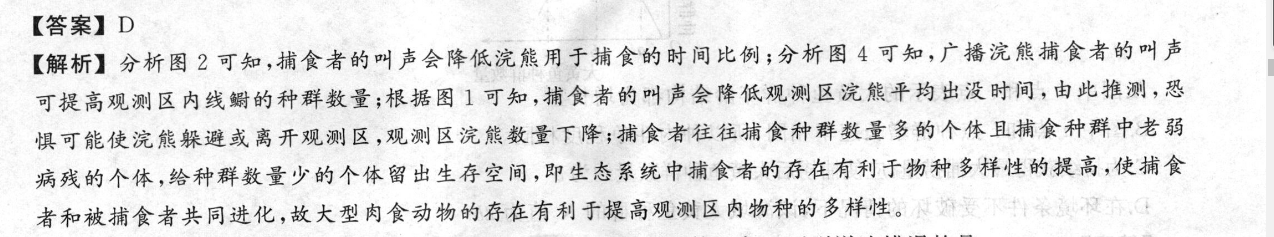 【答案】D
【解析】分析图2可知,捕食者的叫声会降低浣熊用于捕食的时间比例;分析图4可知,广播浣熊捕食者的叫声
可提高观测区内线鳚的种群数量;根据图1可知,捕食者的叫声会降低观测区浣熊平均出没时间,由此推测,恐
惧可能使浣熊躲避或离开观测区,观测区浣熊数量下降;捕食者往往捕食种群数量多的个体且捕食种群中老弱
病残的个体,给种群数量少的个体留出生存空间,即生态系统中捕食者的存在有利于物种多样性的提高,使捕食
者和被捕食者共同进化,故大型肉食动物的存在有利于提高观测区内物种的多样性。